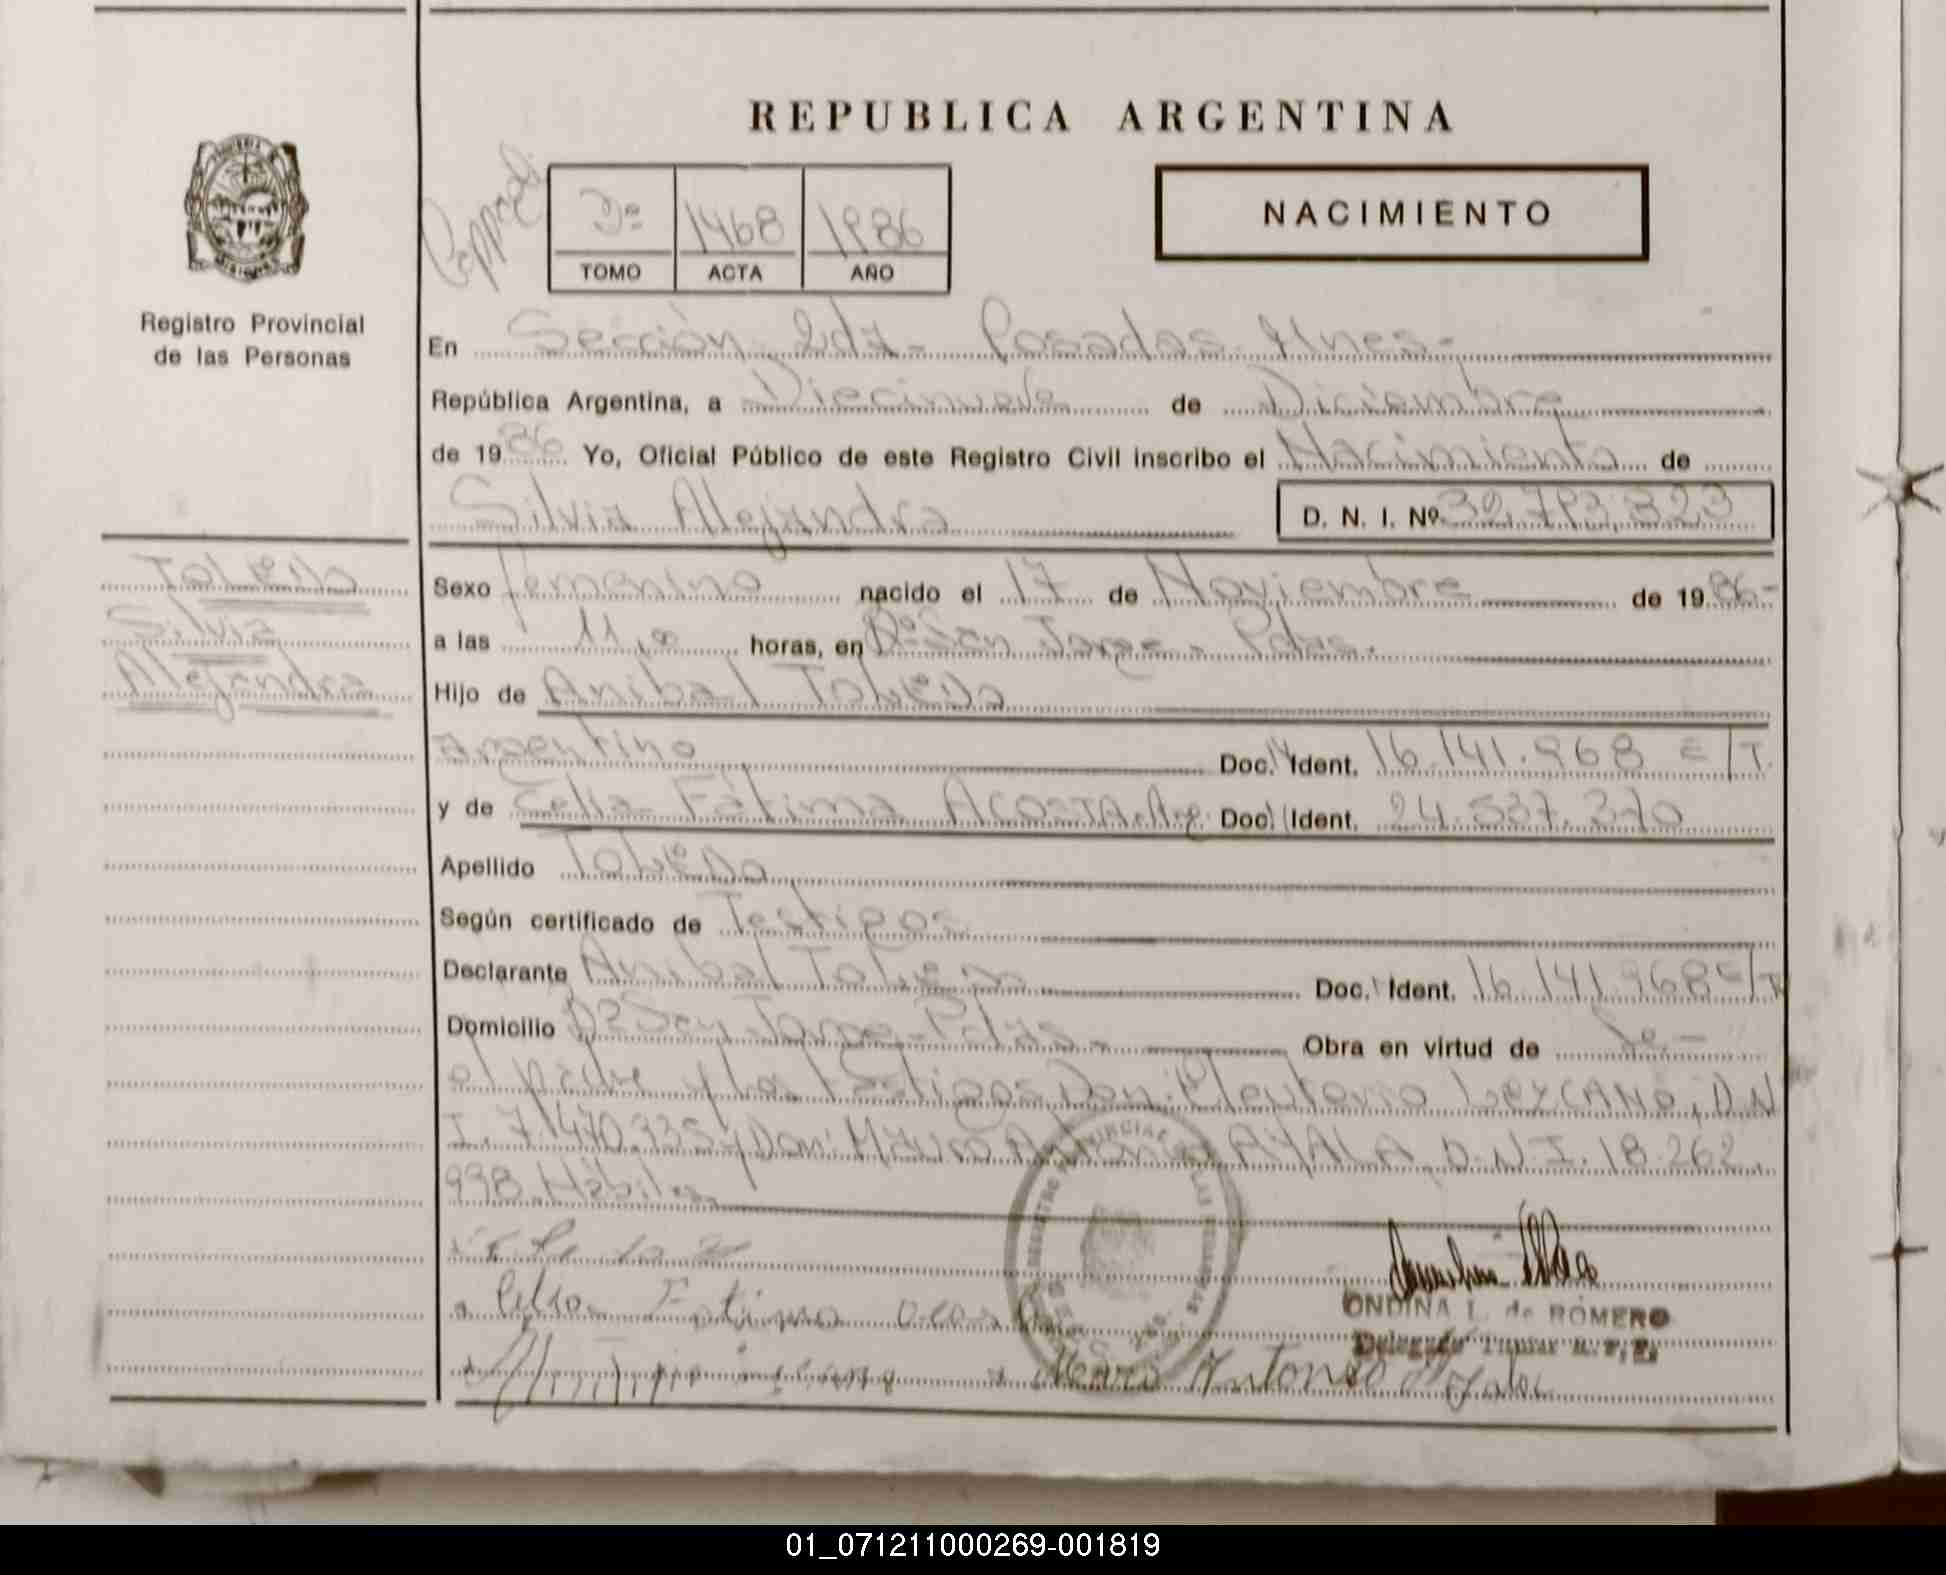 REPUBLICA ARGENTINA
3º 1468 1986
TOMO ACTA AÑO
NACIMIENTO
Registro Provincial
de las Personas
En Sección 2da - Posadas Mnes-
República Argentina, a Diecinueve de Diciembre
de 1986 Yo, Oficial Público de este Registro Civil inscribo el Nacimiento de
Silvia Alejandra D. N. I. Nº 32.793.323
Toledo
Silvia
Alejandra
Sexo femenino nacido el 17 de Noviembre de 1986-
a las 11,0 horas, en Bº San Jorge - Pdas.
Hijo de Anibal Toledo
argentino Doc. Ident. 16.141.968 E/T.
y de Celia Fátima ACOSTA. Arg. Doc. Ident. 24.537.370
Apellido Toledo
Según certificado de Testigos
Declarante Anibal Toledo Doc. Ident. 16.141.968 E/T
Domicilio Bº San Jorge - Pdas. - Obra en virtud de
el padre y los testigos Don: Eleuterio LezCANO, D.N
I. 7.470.335 y Don: Mauro Antonio AYALA, D.N.I. 18.262.
998 Hábiles
Fatima
ONDINA L. de ROMERO
Delegada Titular R. P. P.
Mauro Antonio Ayala
01_071211000269-001819